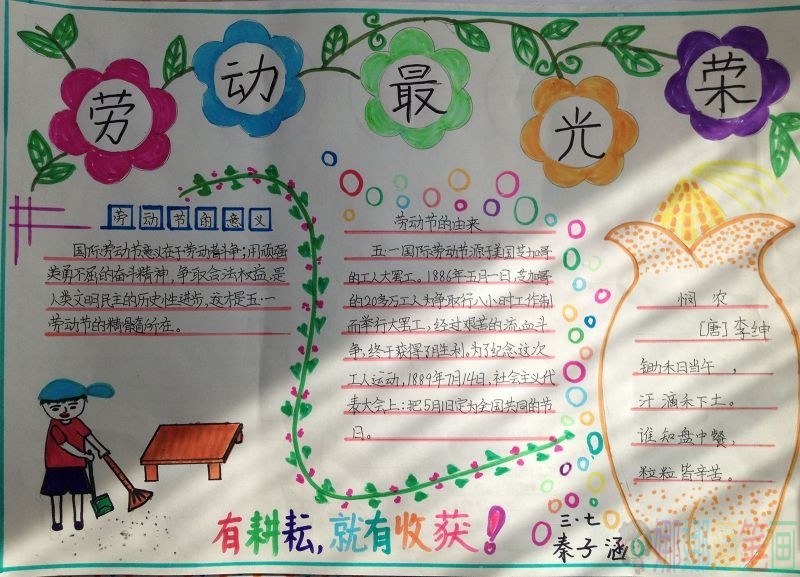 劳动最光荣
劳动节的意义
国际劳动节意义在于劳动者斗争;用顽强
英勇不屈的奋斗精神,争取合法权益.是
人类文明民主的历史性进步,这才是五·一
劳动节的精髓所在。
劳动节的由来
五·一国际劳动节源于美国芝加哥
的工人大罢工。1886年五月一日,芝加哥
的20多万工人为争取行八小时工作制
而举行大罢工,经过艰苦的流血斗
争,终于获得了胜利。为了纪念这次
工人运动,1889年7月14日,社会主义代
表大会上:把5月1日定为全国共同的节
日。
悯农
[唐]李绅
锄禾日当午,
汗滴禾下土。
谁知盘中餐,
粒粒皆辛苦。
有耕耘,就有收获!
三·七
秦子涵